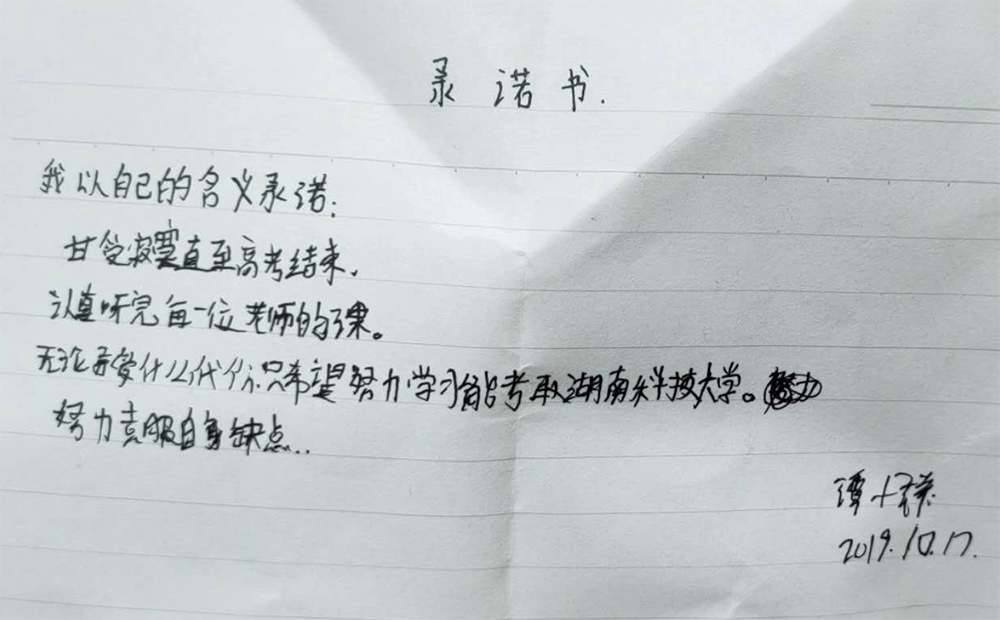 承诺书.
我以自己的名义承诺:
甘受寂寞直至高考结束.
认真听完每一位老师的课。
无论承受什么代价只希望努力学习能考取湖南科技大学。
努力克服自身缺点..
谭
2019.10.17.